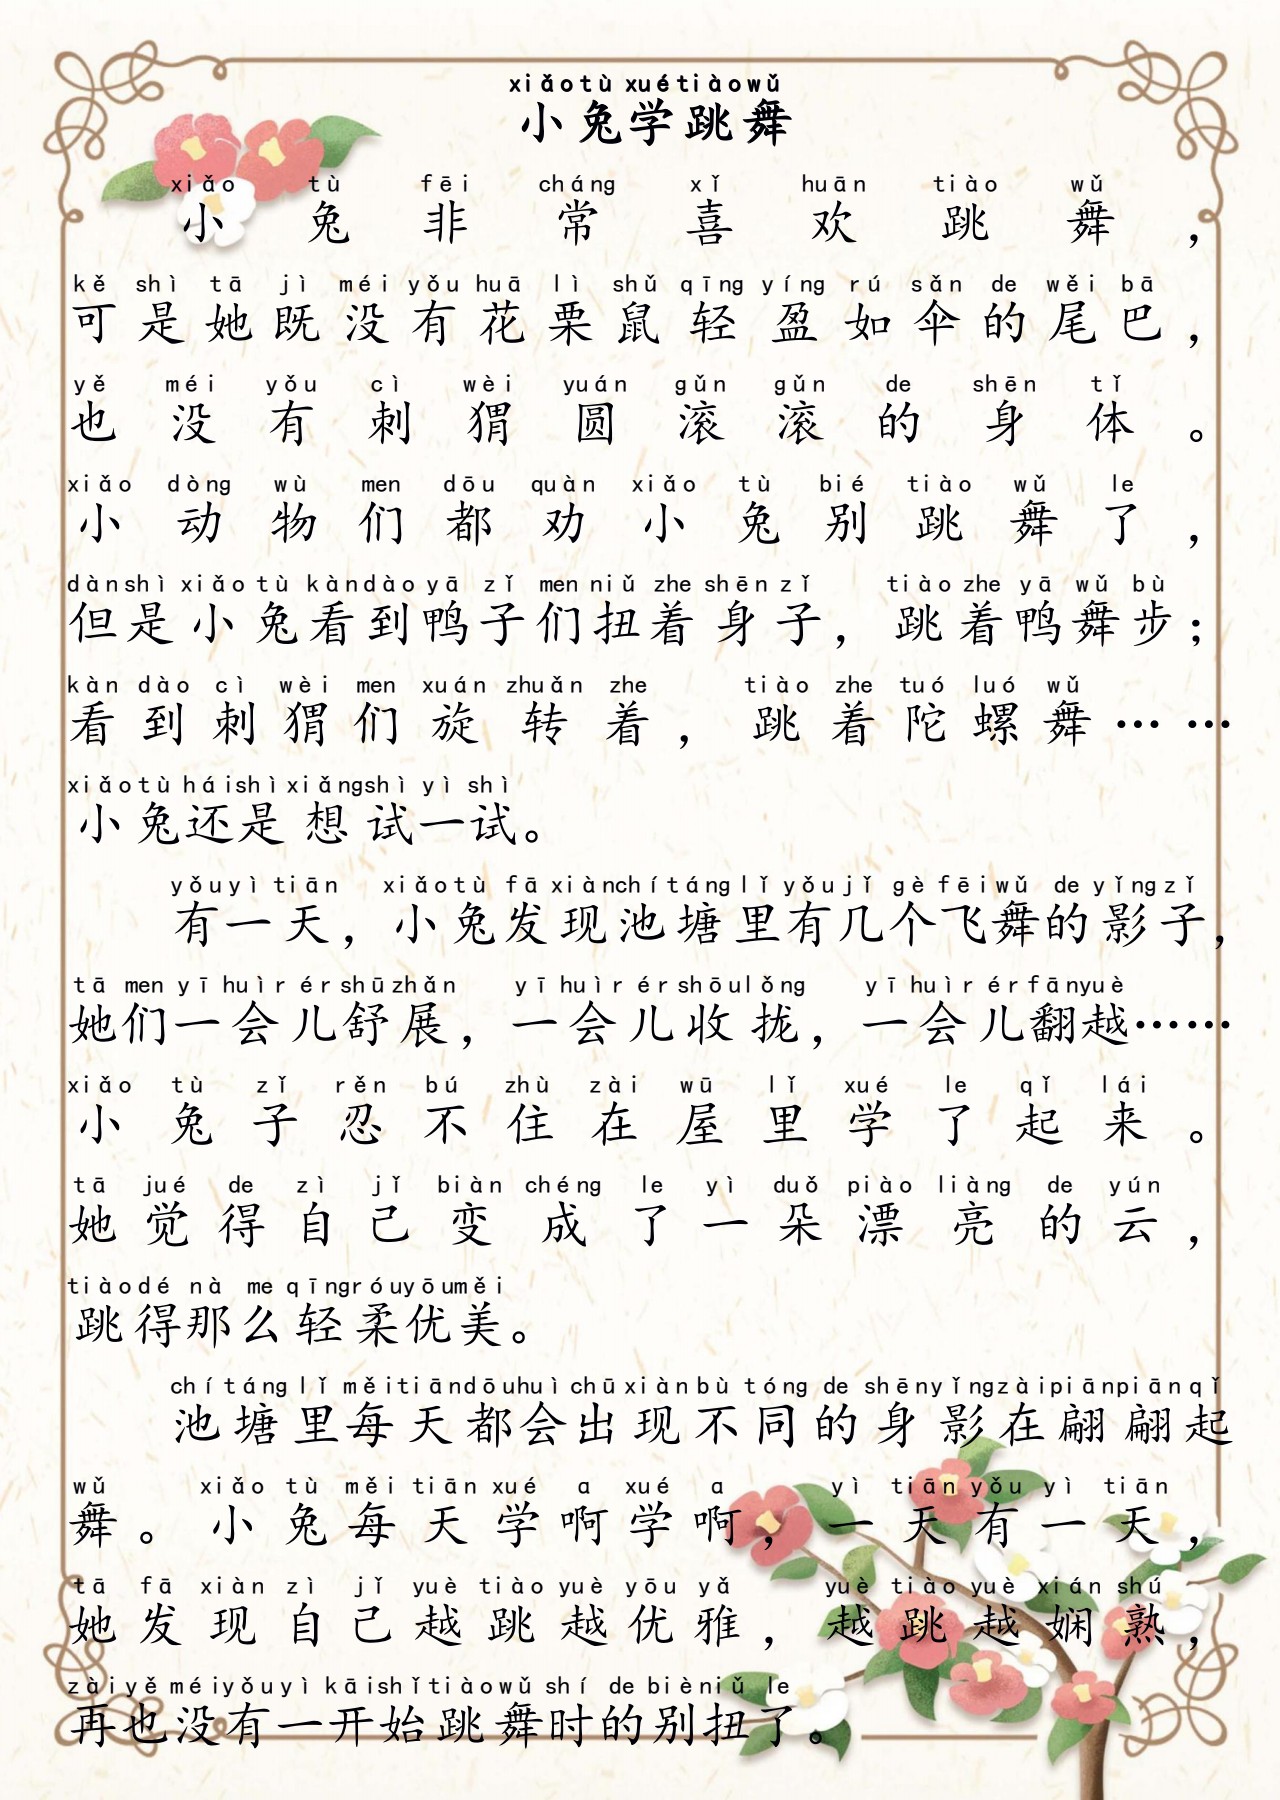 xiǎo tù xué tiào wǔ
小兔学跳舞
xiǎo tù fēi cháng xǐ huān tiào wǔ
小兔非常喜欢跳舞，
kě shì tā jì méi yǒu huā lì shǔ qīng yíng rú sǎn de wěi bā
可是她既没有花栗鼠轻盈如伞的尾巴，
yě méi yǒu cì wèi yuán gǔn gǔn de shēn tǐ
也没有刺猬圆滚滚的身体。
xiǎo dòng wù men dōu quàn xiǎo tù bié tiào wǔ le
小动物们都劝小兔别跳舞了，
dàn shì xiǎo tù kàn dào yā zǐ men niǔ zhe shēn zǐ tiào zhe yā wǔ bù
但是小兔看到鸭子们扭着身子，跳着鸭舞步；
kàn dào cì wèi men xuán zhuǎn zhe tiào zhe tuó luó wǔ
看到刺猬们旋转着，跳着陀螺舞……
xiǎo tù hái shì xiǎng shì yì shì
小兔还是想试一试。
yǒu yì tiān xiǎo tù fā xiàn chí táng lǐ yǒu jǐ gè fēi wǔ de yǐng zǐ
有一天，小兔发现池塘里有几个飞舞的影子，
tā men yī huì r ér shū zhǎn yī huì r ér shōu lǒng yī huì r ér fān yuè
她们一会儿舒展，一会儿收拢，一会儿翻越……
xiǎo tù zǐ rěn bú zhù zài wū lǐ xué le qǐ lái
小兔子忍不住在屋里学了起来。
tā jué de zì jǐ biàn chéng le yì duǒ piào liàng de yún
她觉得自己变成了一朵漂亮的云，
tiào dé nà me qīng róu yōu měi
跳得那么轻柔优美。
chí táng lǐ měi tiān dōu huì chū xiàn bù tóng de shēn yǐng zài piān piān qǐ
池塘里每天都会出现不同的身影在翩翩起
wǔ xiǎo tù měi tiān xué a xué a yì tiān yǒu yì tiān
舞。小兔每天学啊学啊，一天有一天，
tā fā xiàn zì jǐ yuè tiào yuè yōu yǎ yuè tiào yuè xián shú
她发现自己越跳越优雅，越跳越娴熟，
zài yě méi yǒu yì kāi shǐ tiào wǔ shí de biè niǔ le
再也没有一开始跳舞时的别扭了。